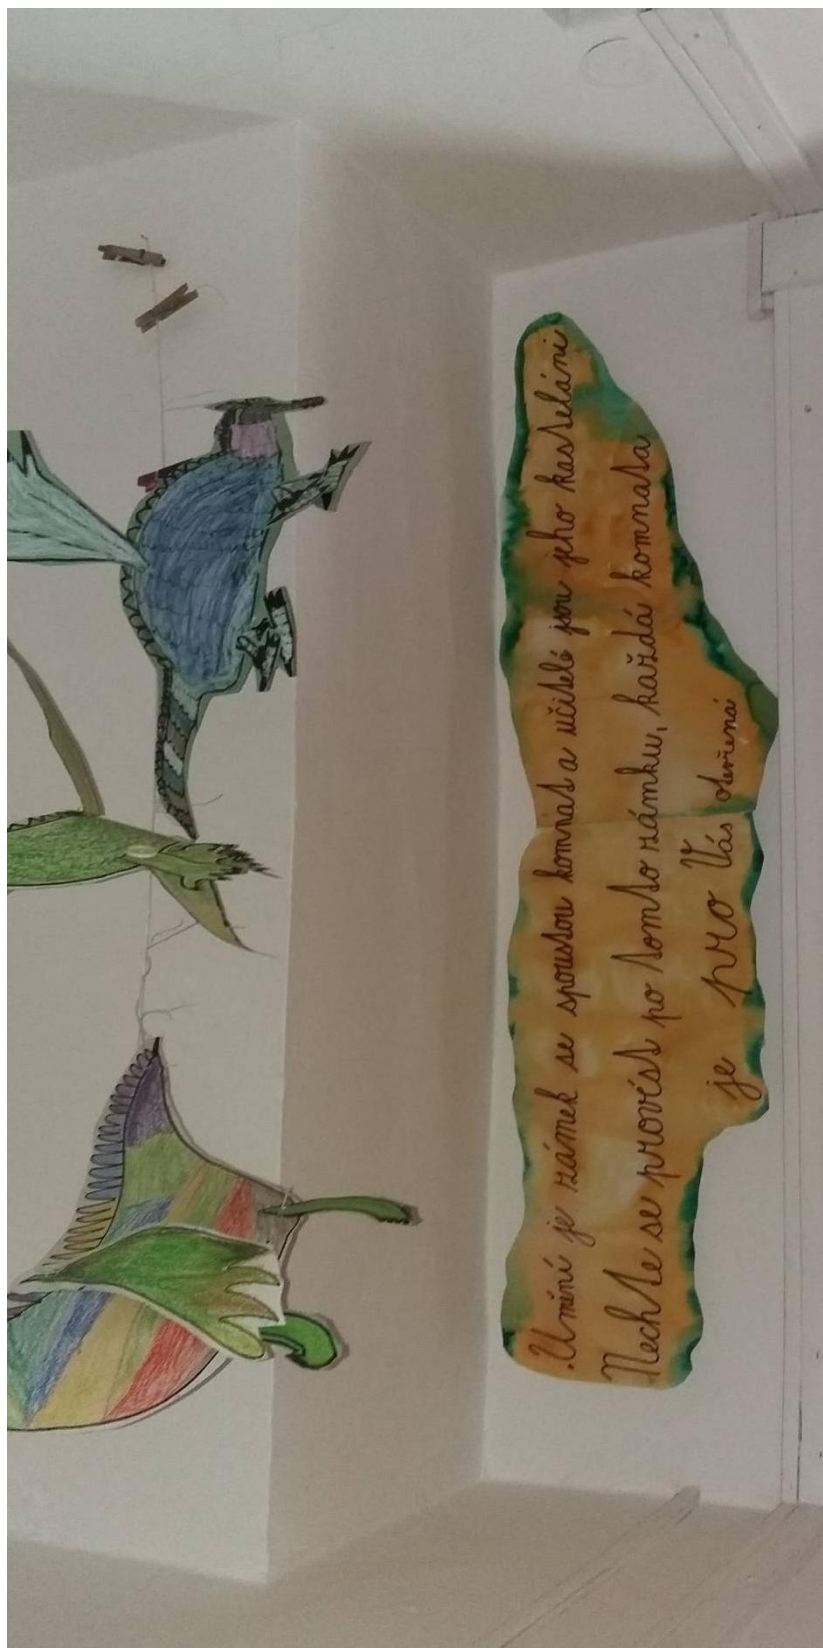 Umění je zámek se spoustou komnat a učitelé jsou jeho kasteláni
Nechte se provést po tomto zámku, každá komnata
je pro Vás otevřená